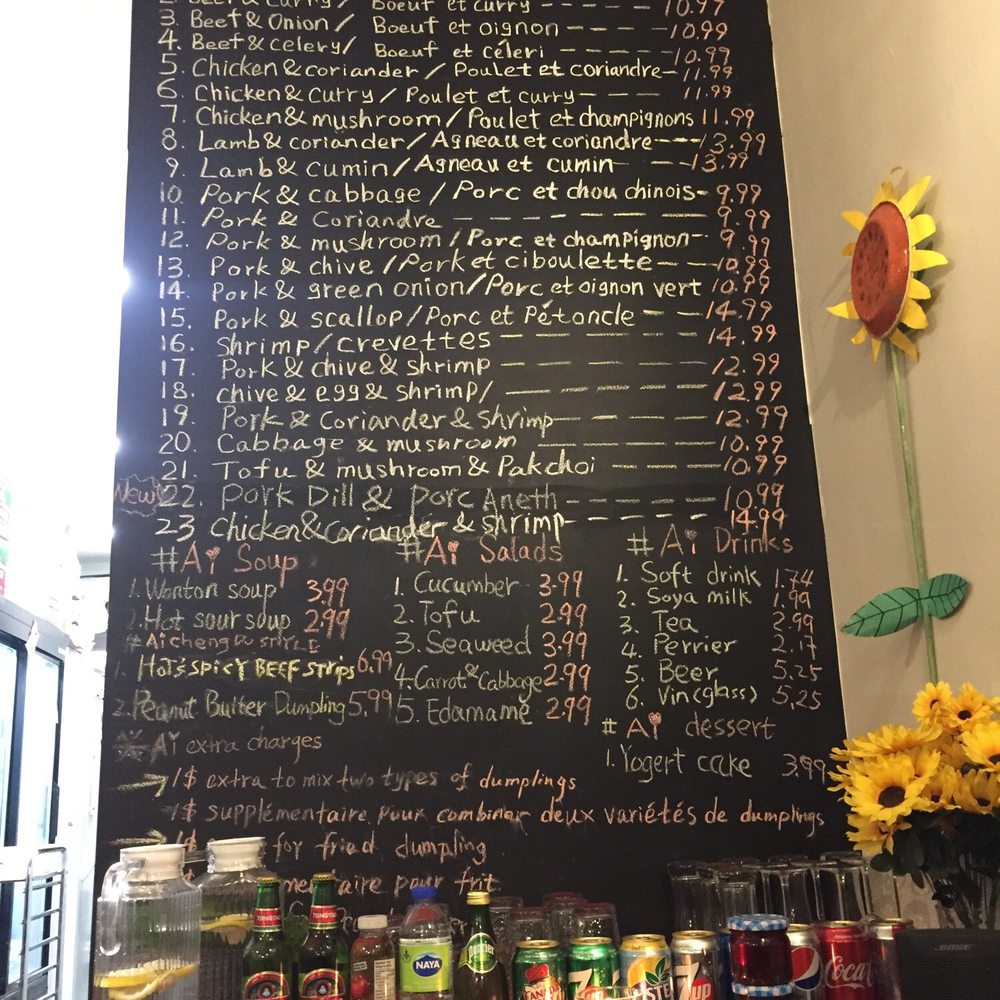 2. Beef & curry / Boeuf et curry -- 10.99
3. Beef & Onion / Boeuf et oignon ---- 10.99
4. Beef & celery / Boeuf et céleri ----- 10.99
5. Chicken & coriander / Poulet et coriandre - 11.99
6. Chicken & curry / Poulet et curry ---- 11.99
7. Chicken & mushroom / Poulet et champignons 11.99
8. Lamb & coriander / Agneau et coriandre --- 13.99
9. Lamb & cumin / Agneau et cumin - -- 13.99
10. Pork & cabbage / Porc et chou chinois - 9.99
11. Pork & Coriandre -------- 9.99
12. Pork & mushroom / Porc et champignon -- 9.99
13. Pork & chive / Pork et ciboulette --- 10.99
14. Pork & green onion / Porc et oignon vert 10.99
15. Pork & scallop / Porc et Pétoncle -- 14.99
16. Shrimp / crevettes ------ 14.99
17. Pork & chive & shrimp ------ 12.99
18. chive & egg & shrimp / ------ 12.99
19. Pork & Coriander & shrimp ----- 12.99
20. Cabbage & mushroom ------ 10.99
21. Tofu & mushroom & Pakchoi ---- 10.99
New! 22. Pork Dill & Porc Aneth ------ 10.99
23 Chicken & Coriander & shrimp ----- 14.99
#Ai Soup
1. Wonton soup 3.99
2. Hot sour soup 2.99
1. HOT & SPICY BEEF STRIPS 6.99
2. Peanut Butter Dumpling 5,99
#Ai Salads
1. Cucumber 3.99
2. Tofu 2.99
3. Seaweed 3.99
4. Carrot & Cabbage 2.99
5. Edamame 2.99
# Ai Drinks
1. Soft drink 1.74
2. Soya milk 1.99
3. Tea 2.99
4. Perrier 2.17
5. Beer 5.25
6. Vin (glass) 5,25
# Ai dessert
1. Yogert cake 3.99
Ai extra charges
1$ extra to mix two types of dumplings
1$ supplémentaire pour combiner deux variétés de dumplings
1$ for fried dumpling
pour frit
TSINGTAO
TSINGTAO
NAYA
7up
Coca
BOSE